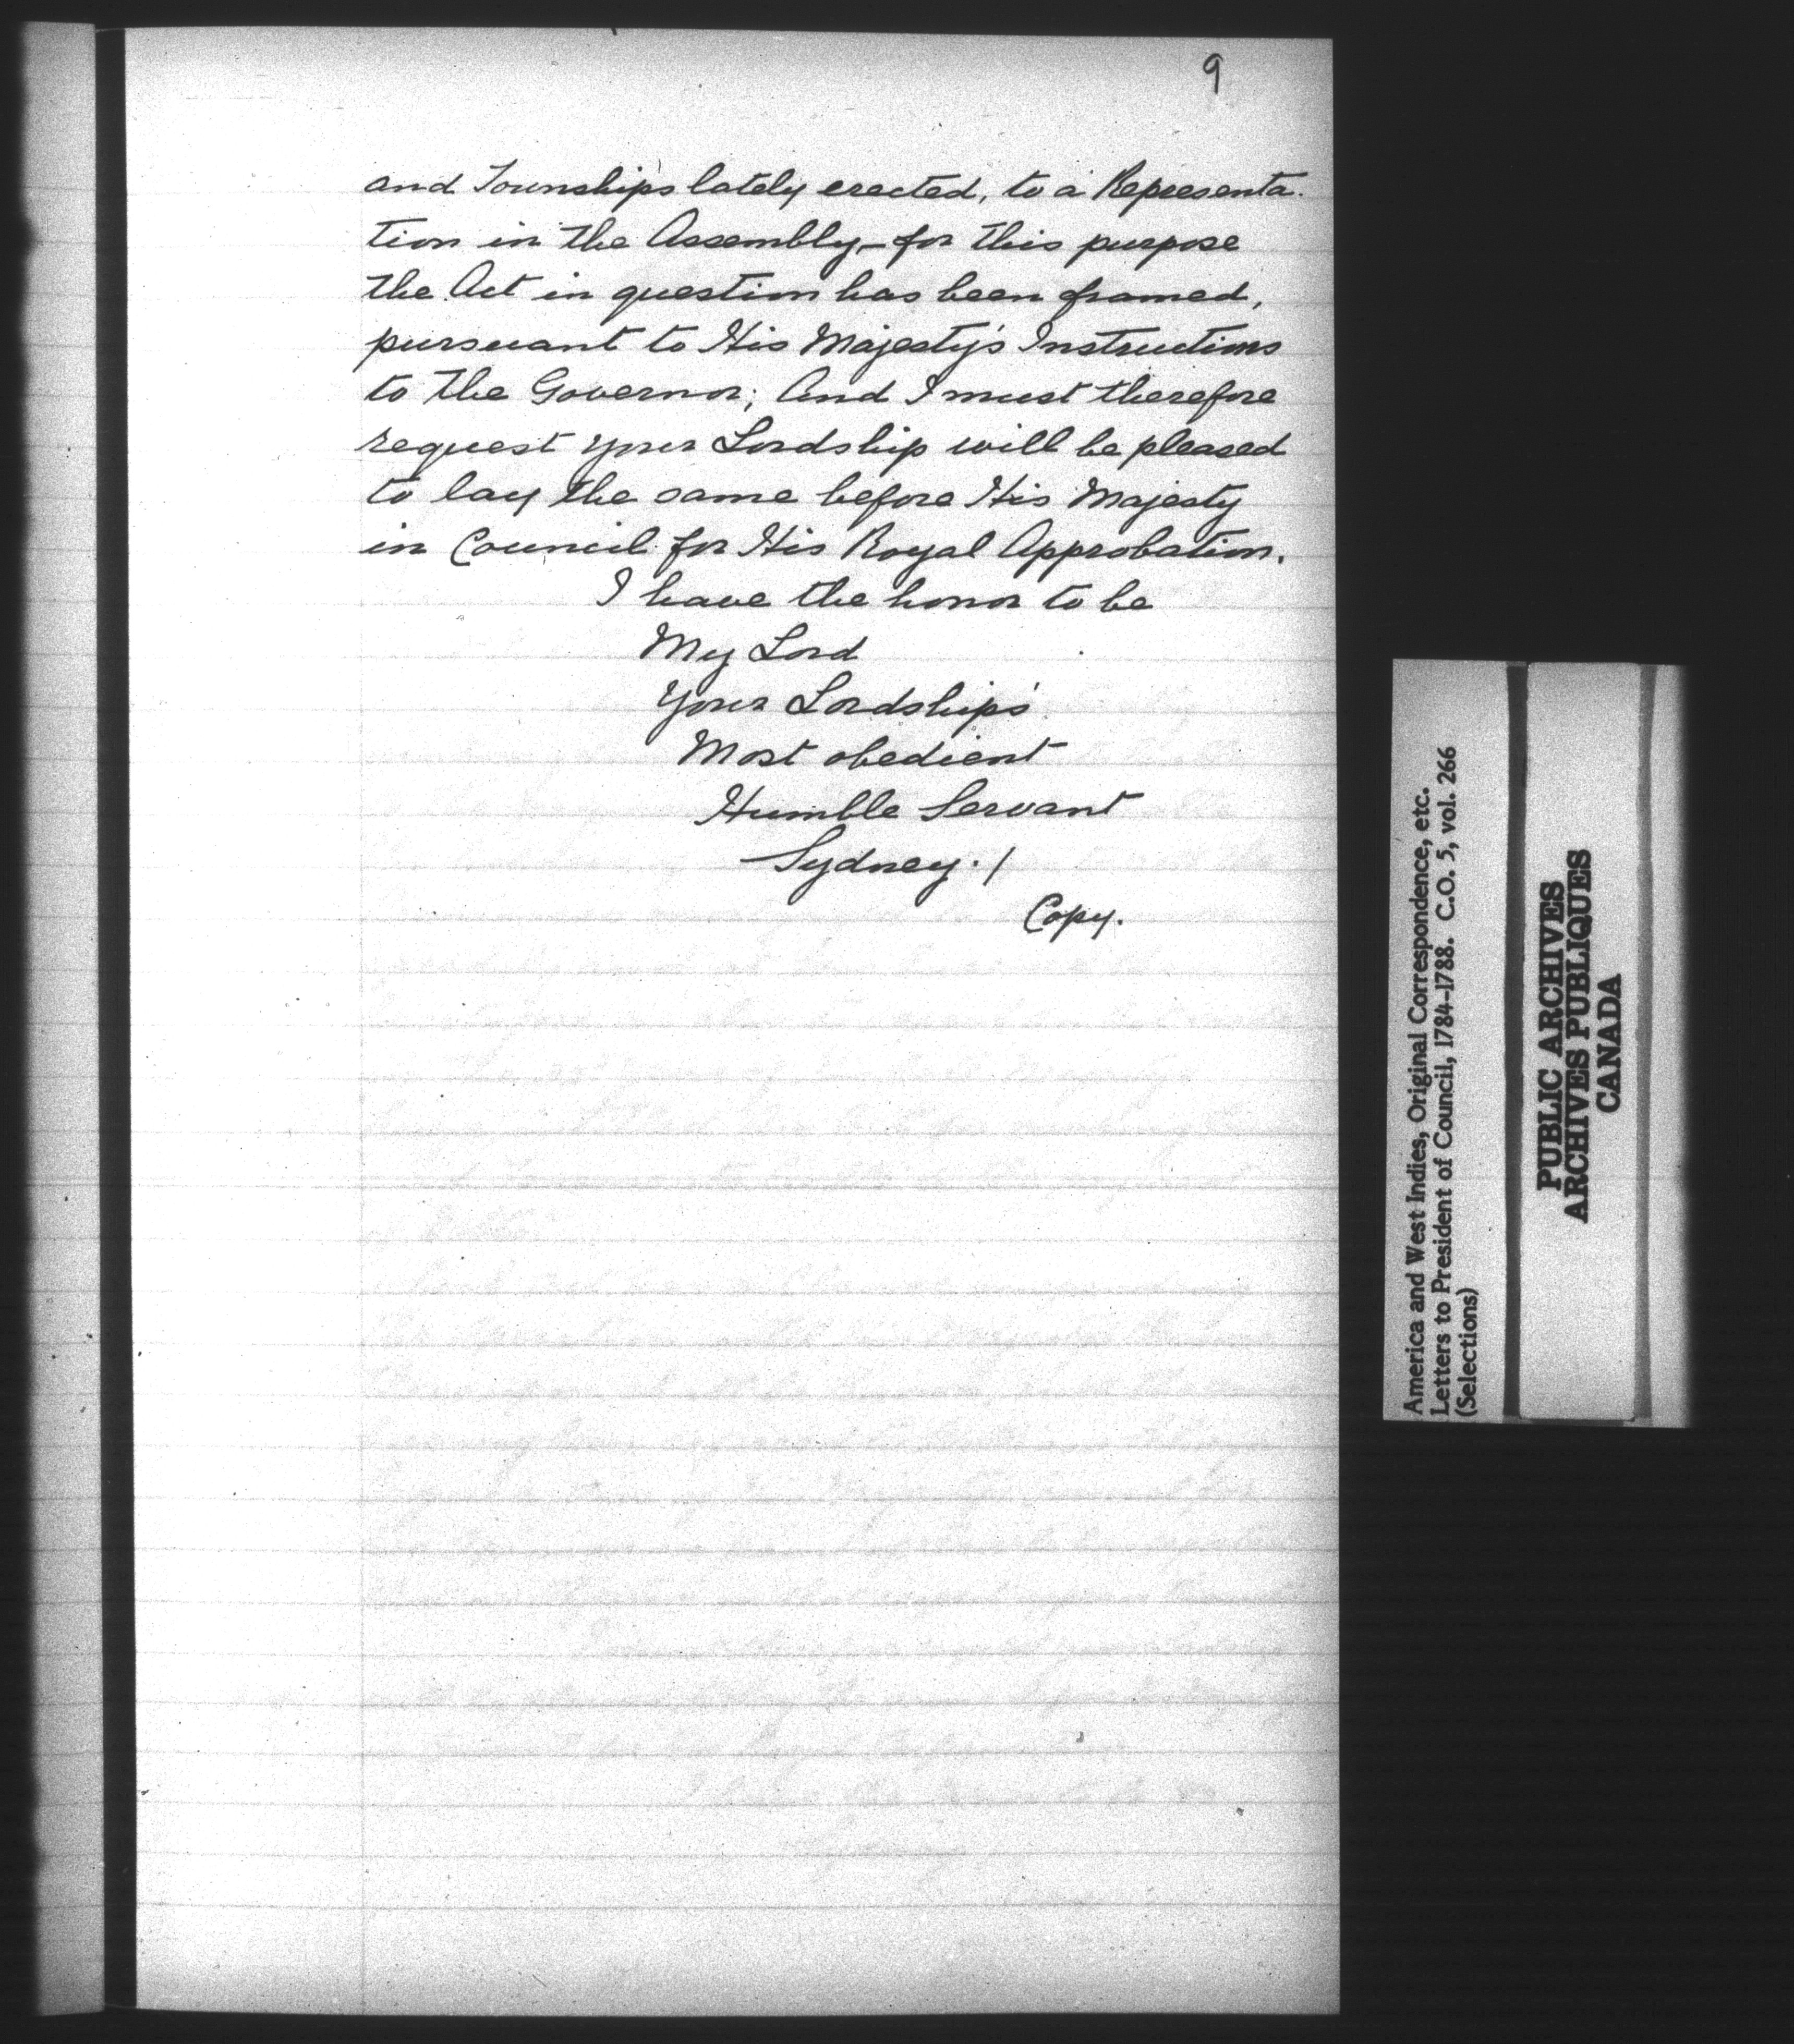 9
and Townships lately erected, to a Representa-
tion in the Assembly,- for this purpose
the Act in question has been framed,
pursuant to His Majesty's Instructions
to the Governor; And I must therefore
request your Lordship will be pleased
to lay the same before His Majesty
in Council for His Royal Approbation.
I have the honor to be
My Lord
Your Lordship's
Most obedient
Humble Servant
Sydney. /
Copy.
America and West Indies, Original Correspondence, etc.
Letters to President of Council, 1784-1788. C.O. 5, vol. 266
(Selections)
PUBLIC ARCHIVES
ARCHIVES PUBLIQUES
CANADA